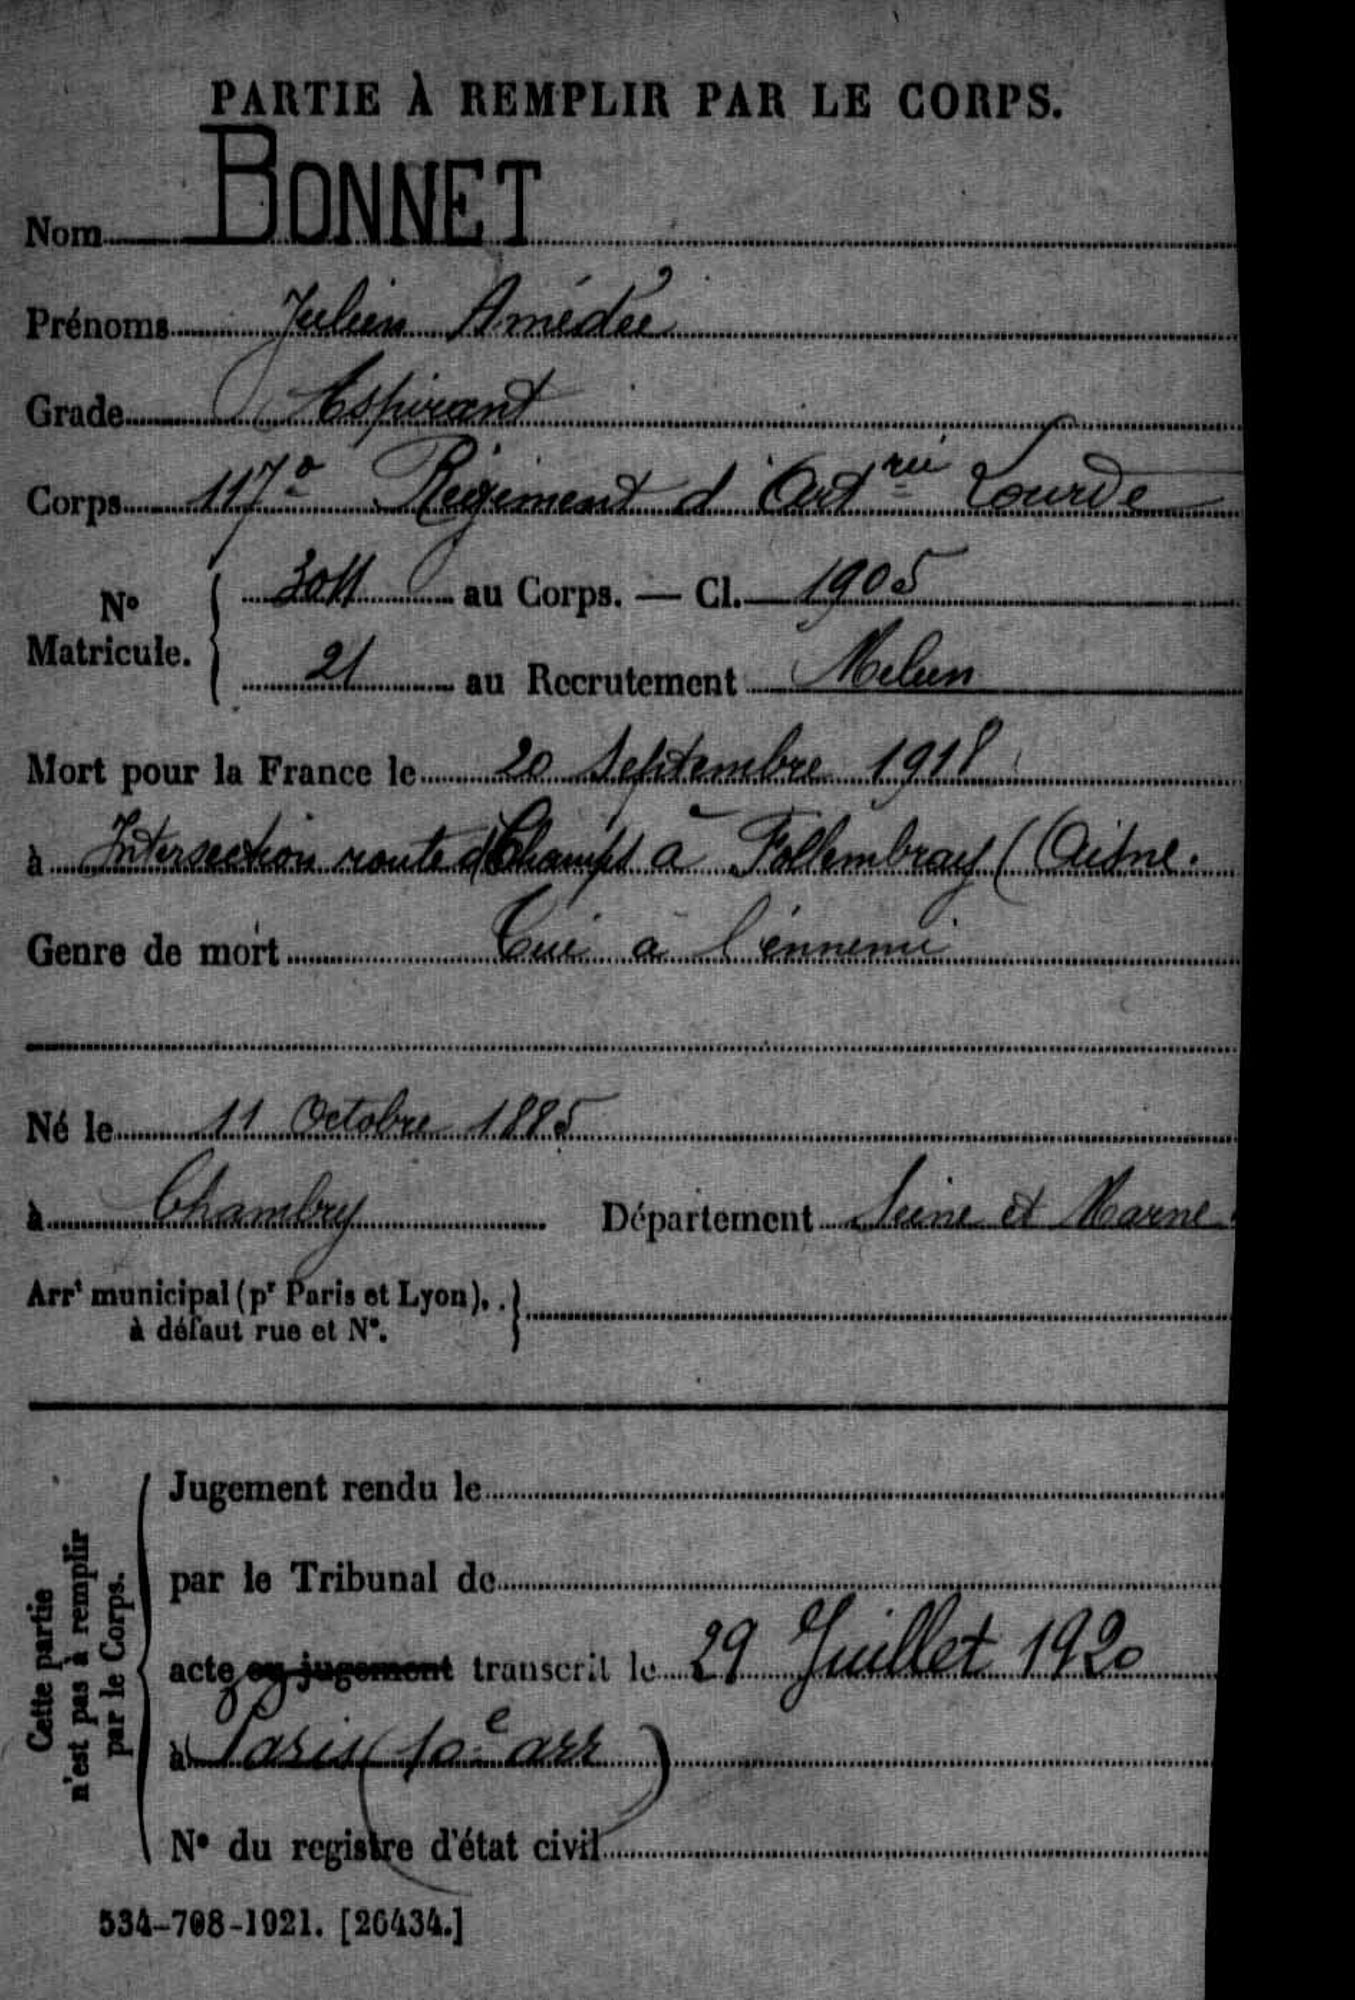 PARTIE À REMPLIR PAR LE CORPS.
Nom BONNET
Prénoms Julien Amédée
Grade Aspirant
Corps 117e Régiment d'Artrie Lourde
No Matricule. 3011 au Corps. — Cl. 1905
21 au Recrutement Melun
Mort pour la France le 20 Septembre 1918
à Intersection route d Champs à Follembray (Aisne.
Genre de mort Tué à l'énnemi
Né le 11 Octobre 1885
à Chambry Département Seine et Marne.
Arrt municipal (pr Paris et Lyon),
à défaut rue et No.
Cette partie n'est pas à remplir par le Corps.
Jugement rendu le
par le Tribunal de
acte ou jugement transcrit le 29 Juillet 1920
à Paris (10e arr)
No du registre d'état civil
534-708-1921. [26434.]